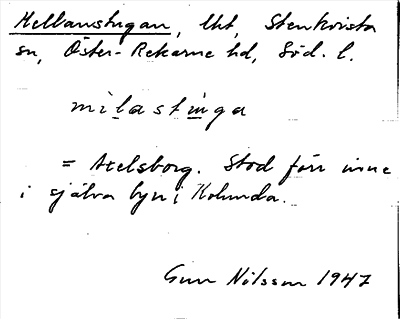 Mellanstugan, lht, Stenkvista
sn, Öster-Rekarne hd, Söd. l.
milastinga
= Axelsborg. Stod förr inne
i själva byn i Kolunda.
Gun Nilsson 1947